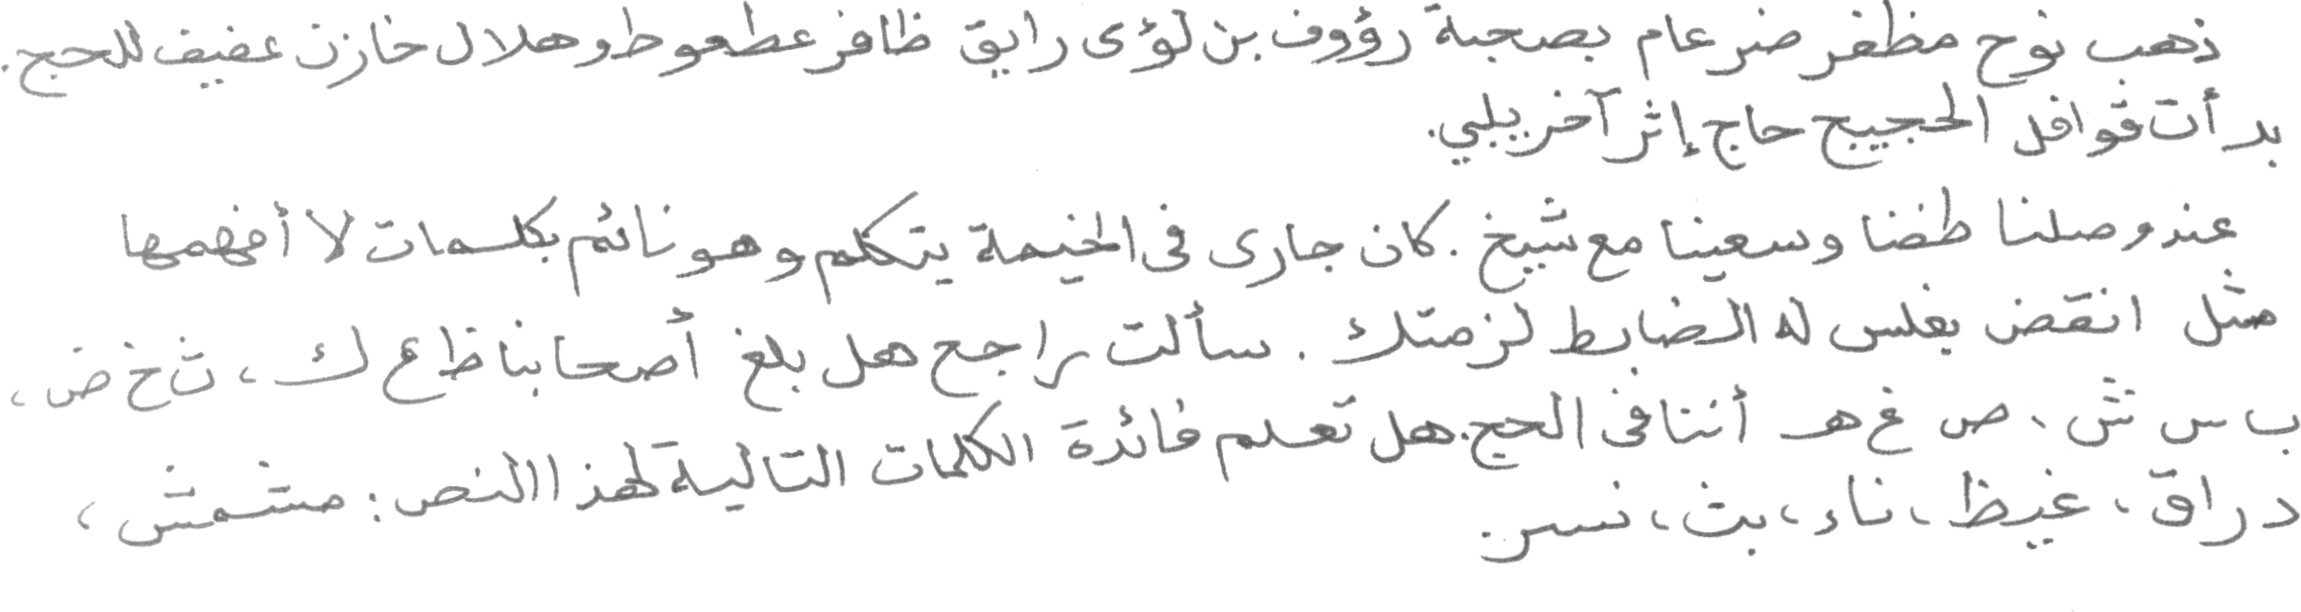 ذهب نوح مظفر ضرغام بصحبة رؤوف بن لؤى رايق ظافر عطعوط وهلال خازن عفيف للحج.
بدأت قوافل الحجيج حاج إثر آخر يلبي.
عند وصلنا طفنا وسعينا مع شيخ. كان جارى فى الخيمة يتكلم وهو نائم بكلمات لا أفهمها
مثل انقض بغلس له الضابط لزمتك. سألت راجح هل بلغ أصحابنا ظ ع ك، ث خ ض،
ب س ش، ص غ هـ أننا فى الحج. هل تعلم فائدة الكلمات التالية لهذا النص: مشمش،
دراق، غيظ، ناء، بث، نسر.